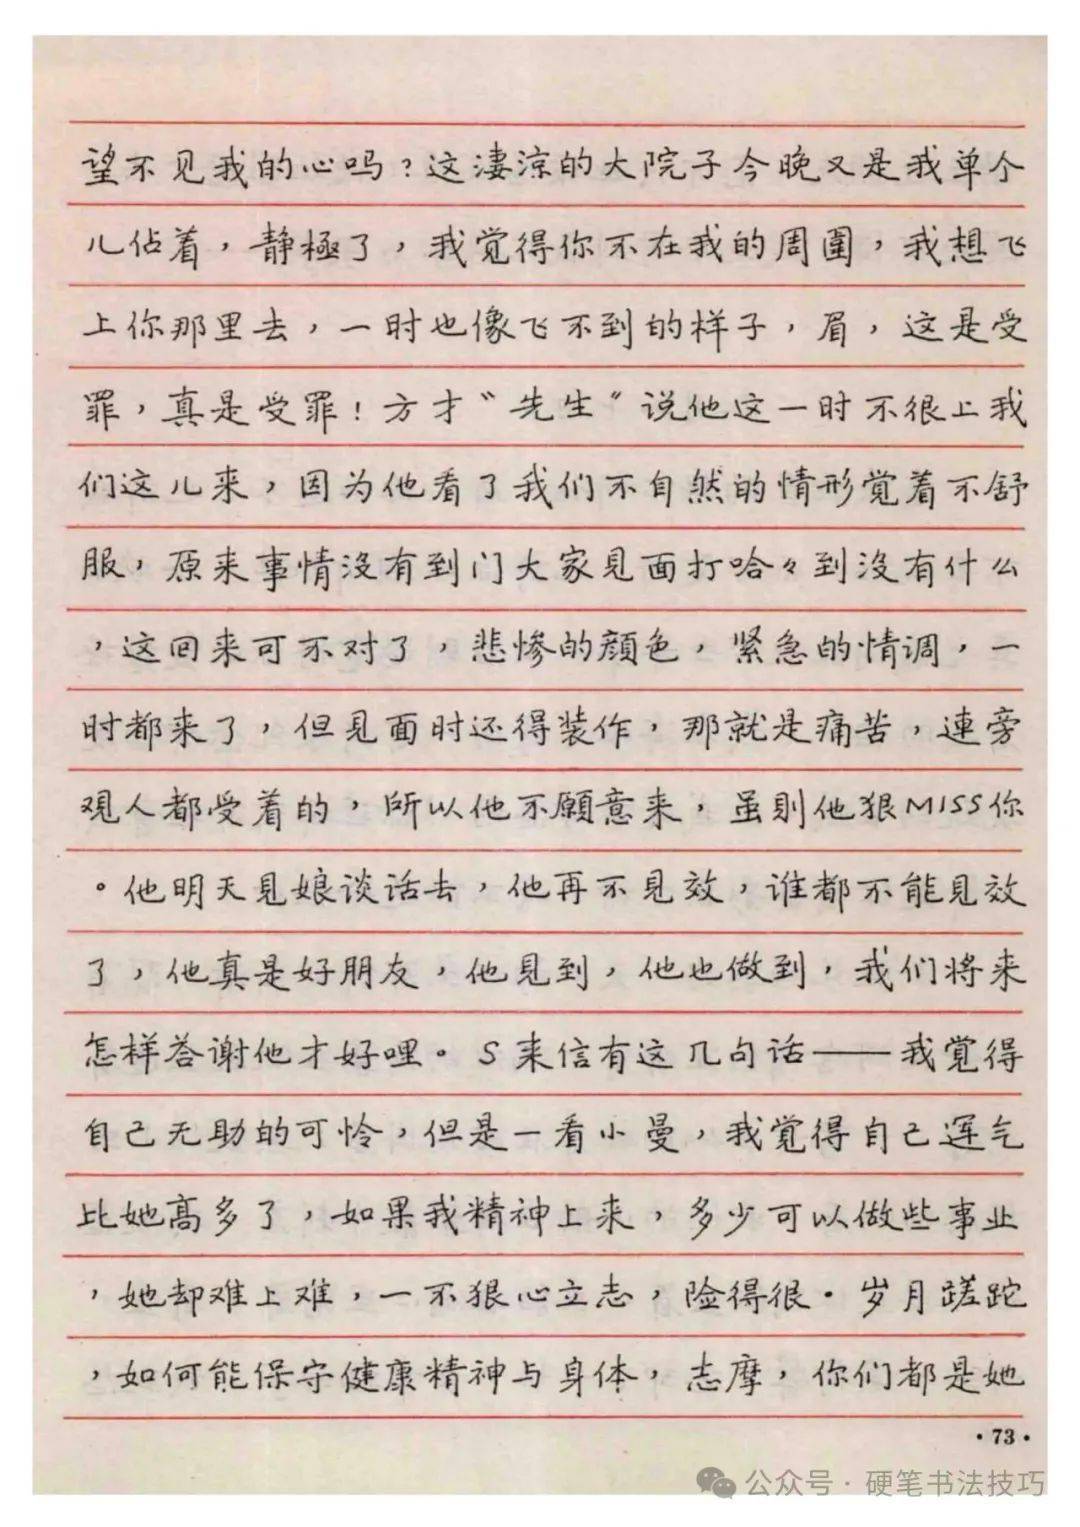 望不见我的心吗?这淒涼的大院子今晚又是我单个
儿佔着，静極了，我觉得你不在我的周圍，我想飞
上你那里去，一时也像飞不到的样子，眉，这是受
罪，真是受罪!方才“先生”说他这一时不很上我
们这儿来，因为他看了我们不自然的情形覚着不舒
服，原来事情没有到门大家見面打哈々到没有什么
，这回来可不对了，悲惨的顔色，紧急的情调，一
时都来了，但見面时还得装作，那就是痛苦，連旁
观人都受着的，所以他不願意来，虽則他狠MISS你
。他明天見娘谈话去，他再不見效，谁都不能見效
了，他真是好朋友，他見到，他也做到，我们将来
怎样答谢他才好哩。S来信有这几句话——我覚得
自己无助的可怜，但是一看小曼，我覚得自己運气
比她高多了，如果我精神上来，多少可以做些事业
，她却难上难，一不狠心立志，险得很·岁月蹉跎
，如何能保守健康精神与身体，志摩，你们都是她
·73·
公众号·硬笔书法技巧